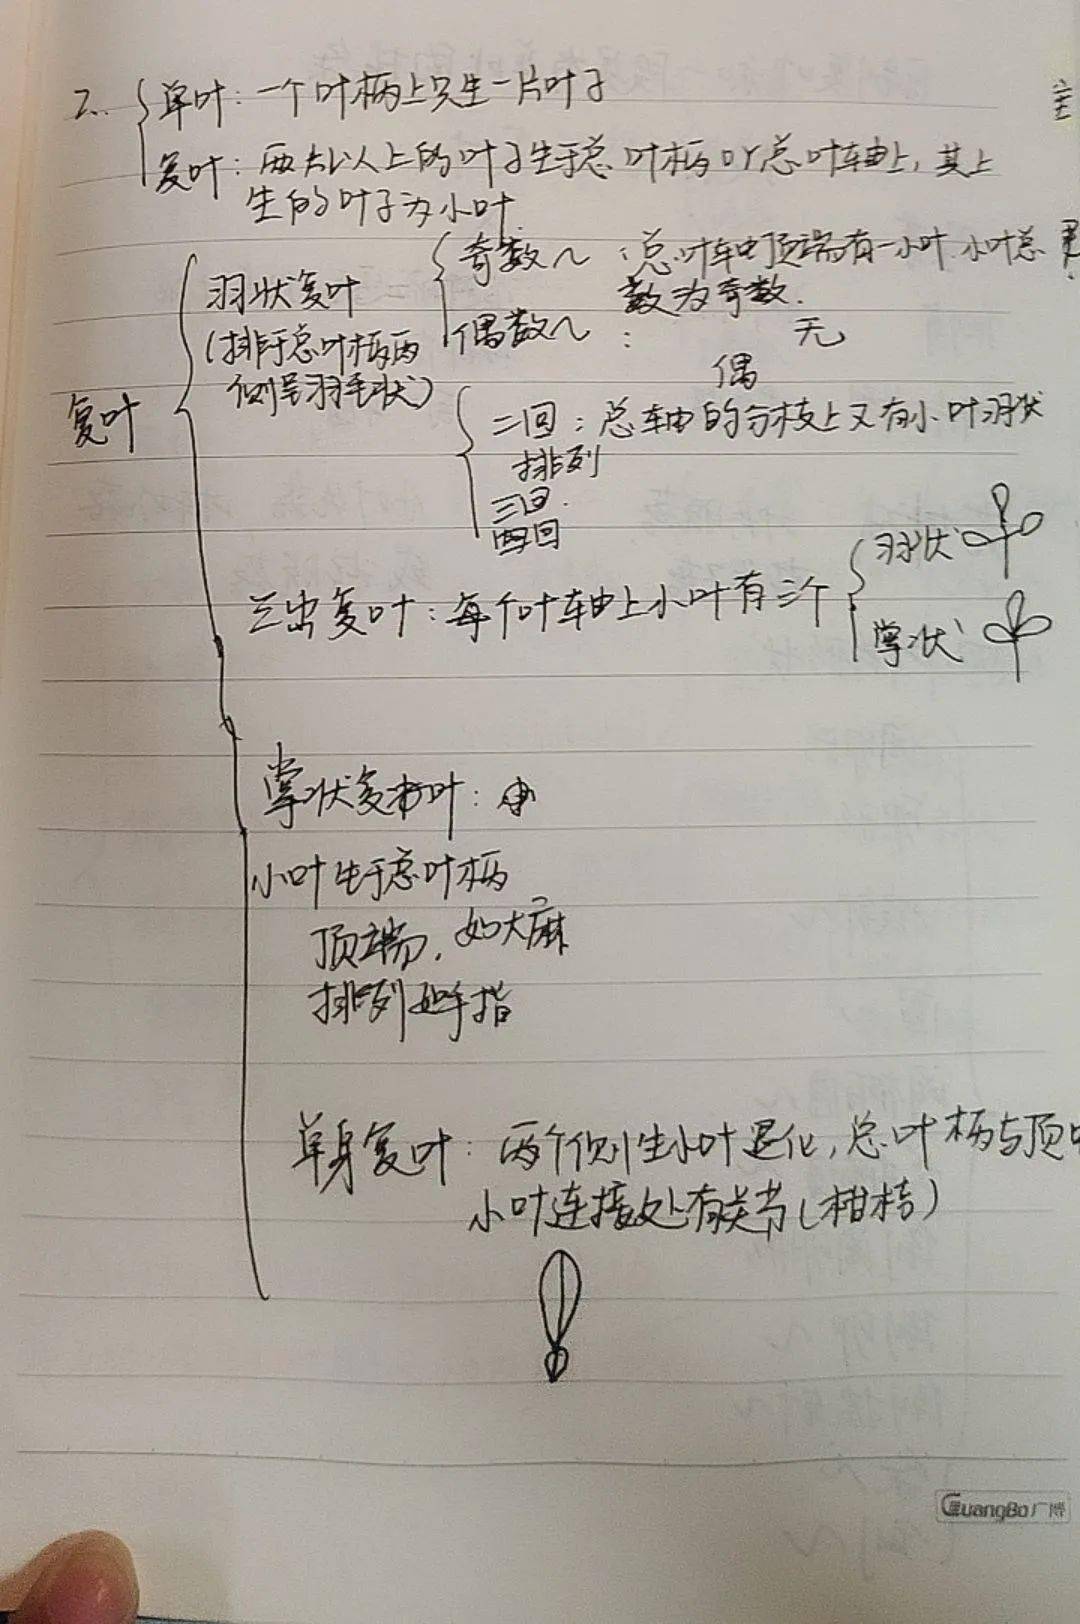 2. 单叶：一个叶柄上只生一片叶子
主
复叶：两片以上的叶子生于总叶柄or总叶轴上，其上
生的叶子为小叶
复叶
羽状复叶
(排于总叶柄两
侧呈羽毛状)
奇数～：总叶轴顶端有一小叶 小叶总
数为奇数.
偶数～： 无
偶
二回：总轴的分枝上又有小叶羽状
排列
三回.
四回
三出复叶：每个叶轴上小叶有三个
羽状
掌状
掌状复叶：
小叶生于总叶柄
顶端，如大麻
排列如手指
单身复叶：两个侧生小叶退化，总叶柄与顶
小叶连接处有关节(柑桔)
GuangBo广博